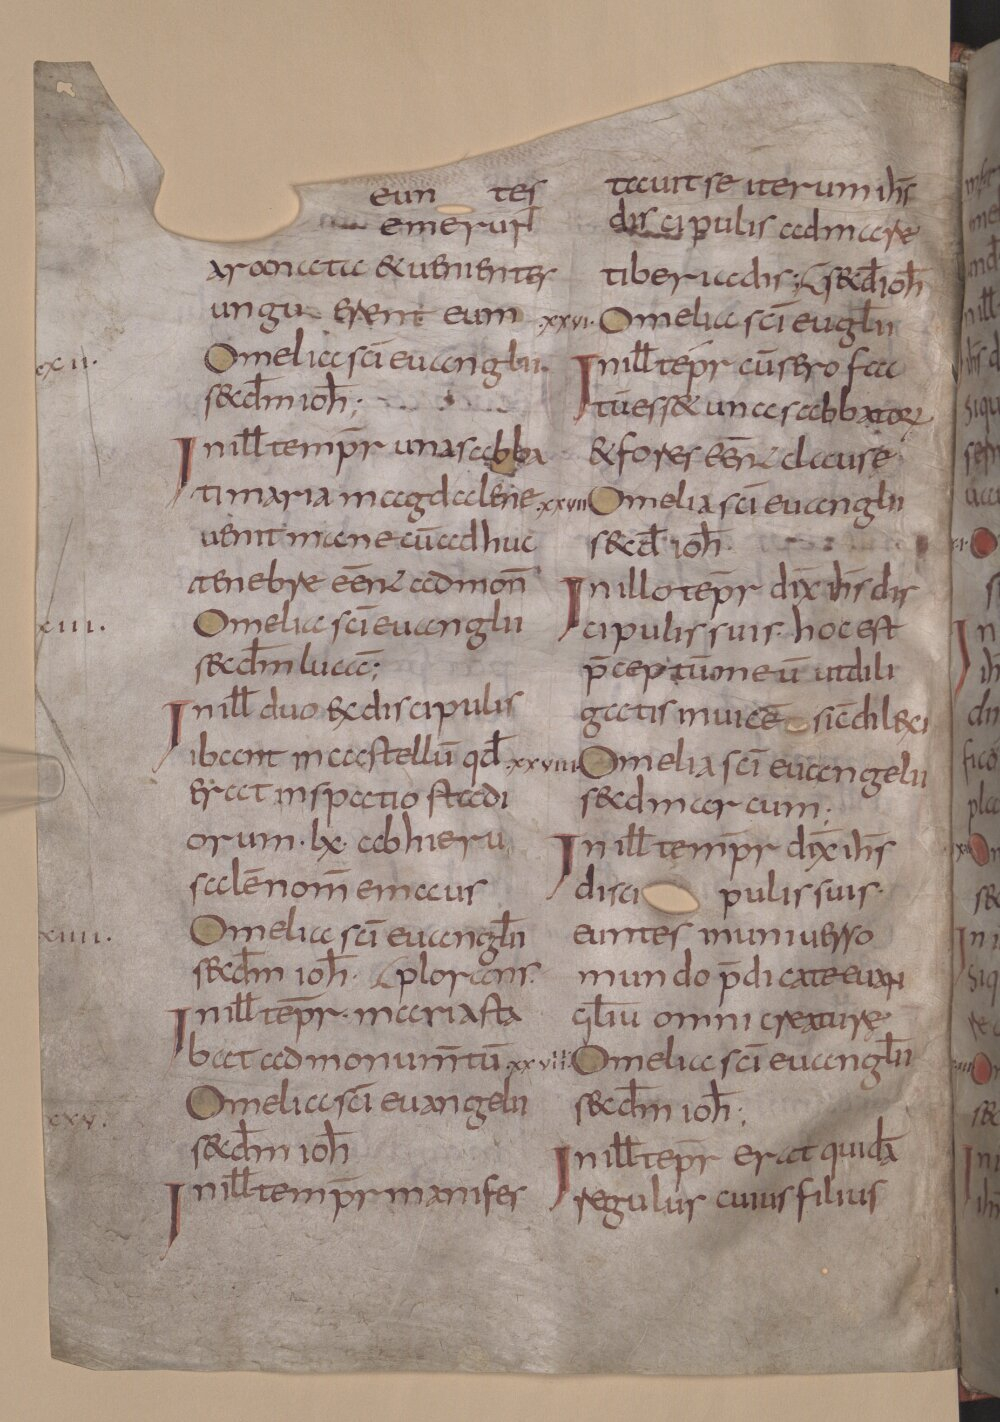 eun tes
emerunt
aromata & uenientes
ungu erent eum
xxii. Omelia sci euanglii
secdm ioh;
In ill tempr una sabba
ti maria magdalene
uenit mane cu adhuc
tenebre eent ad mon
xxiii. Omelia sci euanglii
secdm luca;
In ill duo ex discipulis
ibant in castellu qd
erat in spatio stadi
orum . lx . ab hieru
sale nom emaus
xxiiii. Omelia sci euanglii
secdm ioh. plorans.
In ill tepr. maria sta
bat ad monumtu
xxv. Omelia sci euangelii
secdm ioh
In ill tempr manifes
tauit se iterum ihs
discipulis ad mare
tiberiadis; secd ioh
.xxvi. Omelia sci euglii
In ill tepr cu sero fac
tu ess& una sabbator
& fores eent clause
.xxvii Omelia sci euanglii
secd ioh.
In illo tepr dix ihs dis
cipulis suis. hoc est
pceptu meu ut dili
gatis inuice sic dilexi
.xxviii. Omelia sci euangelii
secd marcum;
In ill tempr dix ihs
disci pulis suis.
euntes in uniuerso
mundo pdicate euan
gliu omni creature
.xxviiii. Omelia sci euanglii
secdm ioh;
In ill tepr erat quida
regulus cuius filius